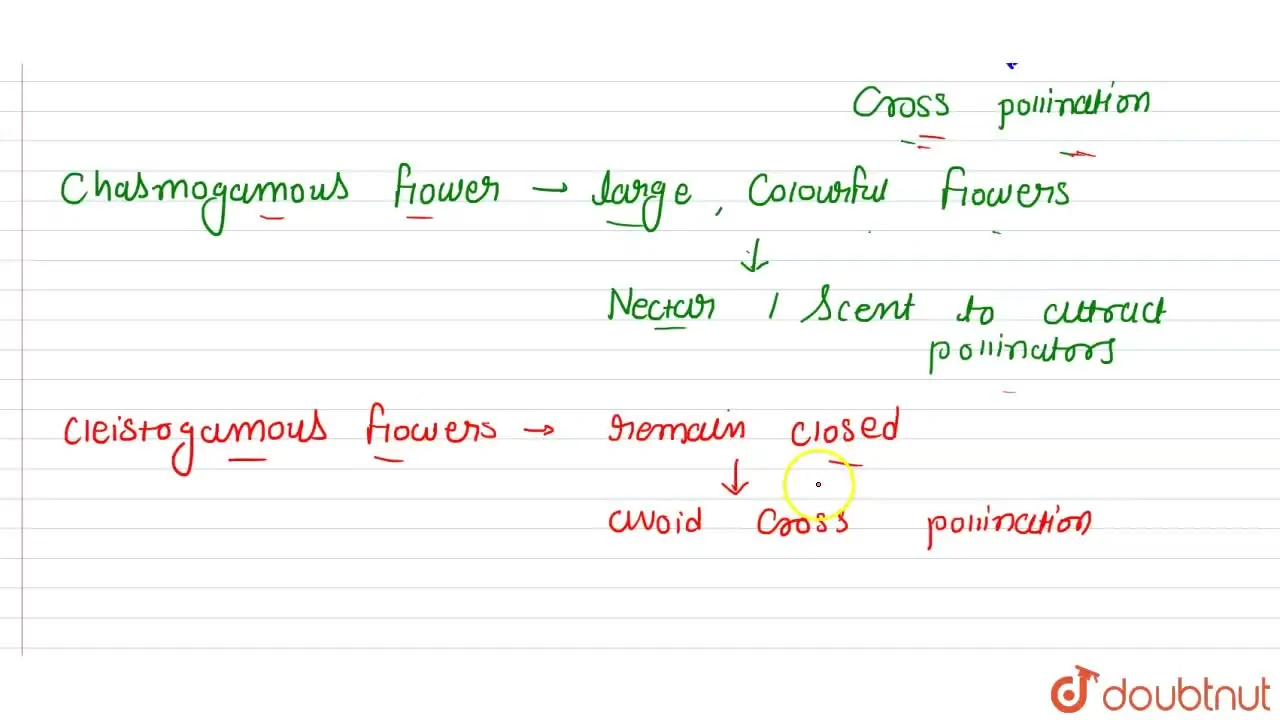 Cross pollination
Chasmogamous flower → large, Colourful flowers
↓
Nectar / Scent to attract
pollinators
Cleistogamous flowers → remain closed
↓
avoid Cross pollination
doubtnut